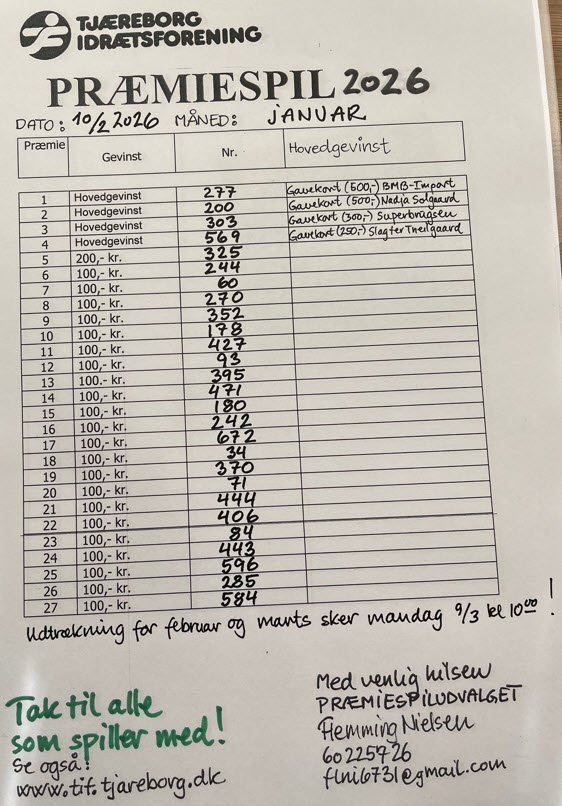 TJÆREBORG
IDRÆTSFORENING
PRÆMIESPIL 2026
DATO: 10/2 2026 MÅNED: JANUAR
Præmie Gevinst Nr. Hovedgevinst
1 Hovedgevinst 277 Gavekort (500,-) BMB-Import
2 Hovedgevinst 200 Gavekort (500,-) Nadja Solgaard
3 Hovedgevinst 303 Gavekort (300,-) Superbrugsen
4 Hovedgevinst 569 Gavekort (250,-) Slagter Theilgaard
5 200,- kr. 325
6 100,- kr. 244
7 100,- kr. 60
8 100,- kr. 270
9 100,- kr. 352
10 100,- kr. 178
11 100,- kr. 427
12 100,- kr. 93
13 100.- kr. 395
14 100,- kr. 471
15 100,- kr. 180
16 100,- kr. 242
17 100,- kr. 672
18 100,- kr. 34
19 100,- kr. 370
20 100,- kr. 71
21 100,- kr. 444
22 100,- kr. 406
23 100,- kr. 84
24 100,- kr. 443
25 100,- kr. 596
26 100,- kr. 285
27 100,- kr. 584
Udtrækning for februar og marts sker mandag 9/3 kl 10⁰⁰!
Tak til alle
som spiller med!
Se også!
www.tif.tjareborg.dk
Med venlig hilsen
PRÆMIESPILUDVALGET
Flemming Nielsen
60225726
flni6731@gmail.com